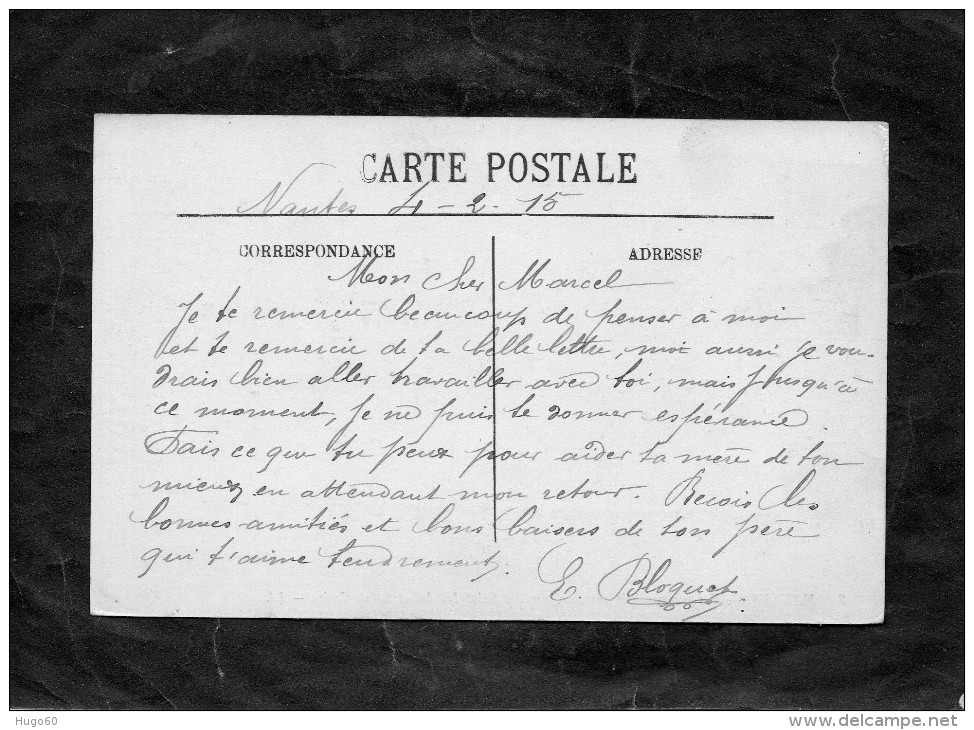 CARTE POSTALE
Nantes 4-2-15
CORRESPONDANCE
ADRESSE
Mon cher Marcel
Je te remercie beaucoup de penser à moi
et te remercie de ta belle lettre, moi aussi je vou-
drais bien aller travailler avec toi, mais jusqu'à
ce moment, je ne puis te donner espérance.
Fais ce que tu peux pour aider ta mère de ton
mieux en attendant mon retour. Recois les
bonnes amitiés et bons baisers de ton père
qui t'aime tendrement.
E. Bloquet
Hugo60
www.delcampe.net